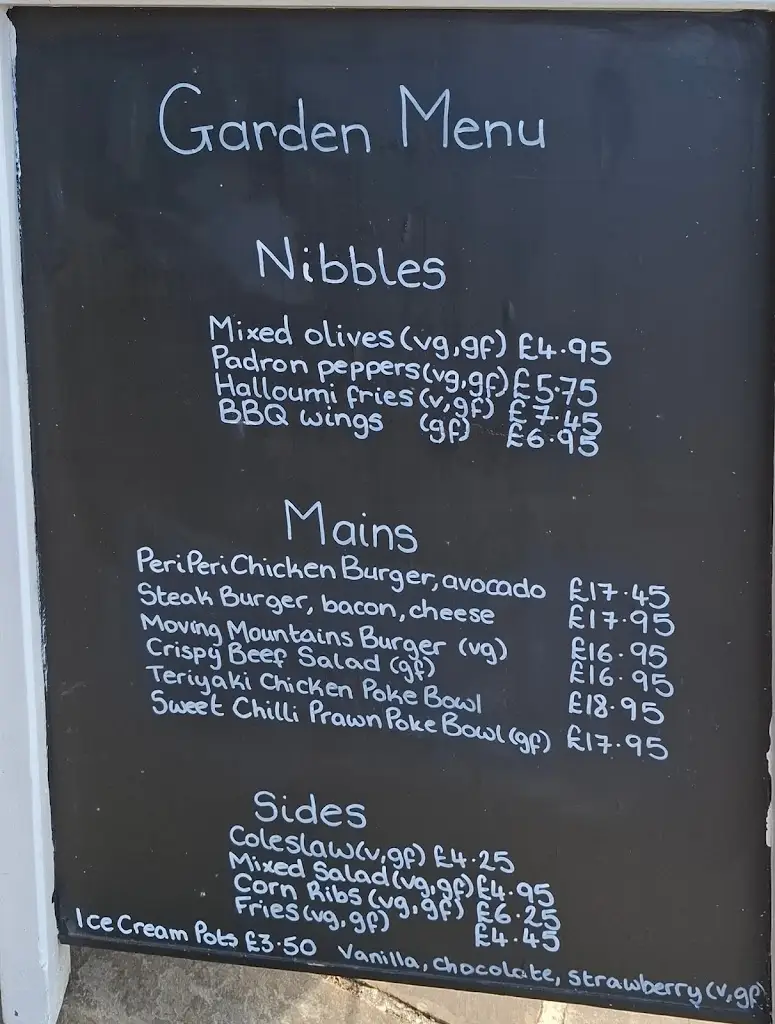 Garden Menu
Nibbles
Mixed olives (vg,gf) £4.95
Padron peppers (vg,gf) £5.75
Halloumi fries (v,gf) £7.45
BBQ wings (gf) £6.95
Mains
Peri Peri Chicken Burger, avocado £17.45
Steak Burger, bacon, cheese £17.95
Moving Mountains Burger (vg) £16.95
Crispy Beef Salad (gf) £16.95
Teriyaki Chicken Poke Bowl £18.95
Sweet Chilli Prawn Poke Bowl (gf) £17.95
Sides
Coleslaw (v,gf) £4.25
Mixed Salad (vg,gf) £4.95
Corn Ribs (vg,gf) £6.25
Fries (vg,gf) £4.45
Ice Cream Pots £3.50 Vanilla, chocolate, strawberry (v,gf)